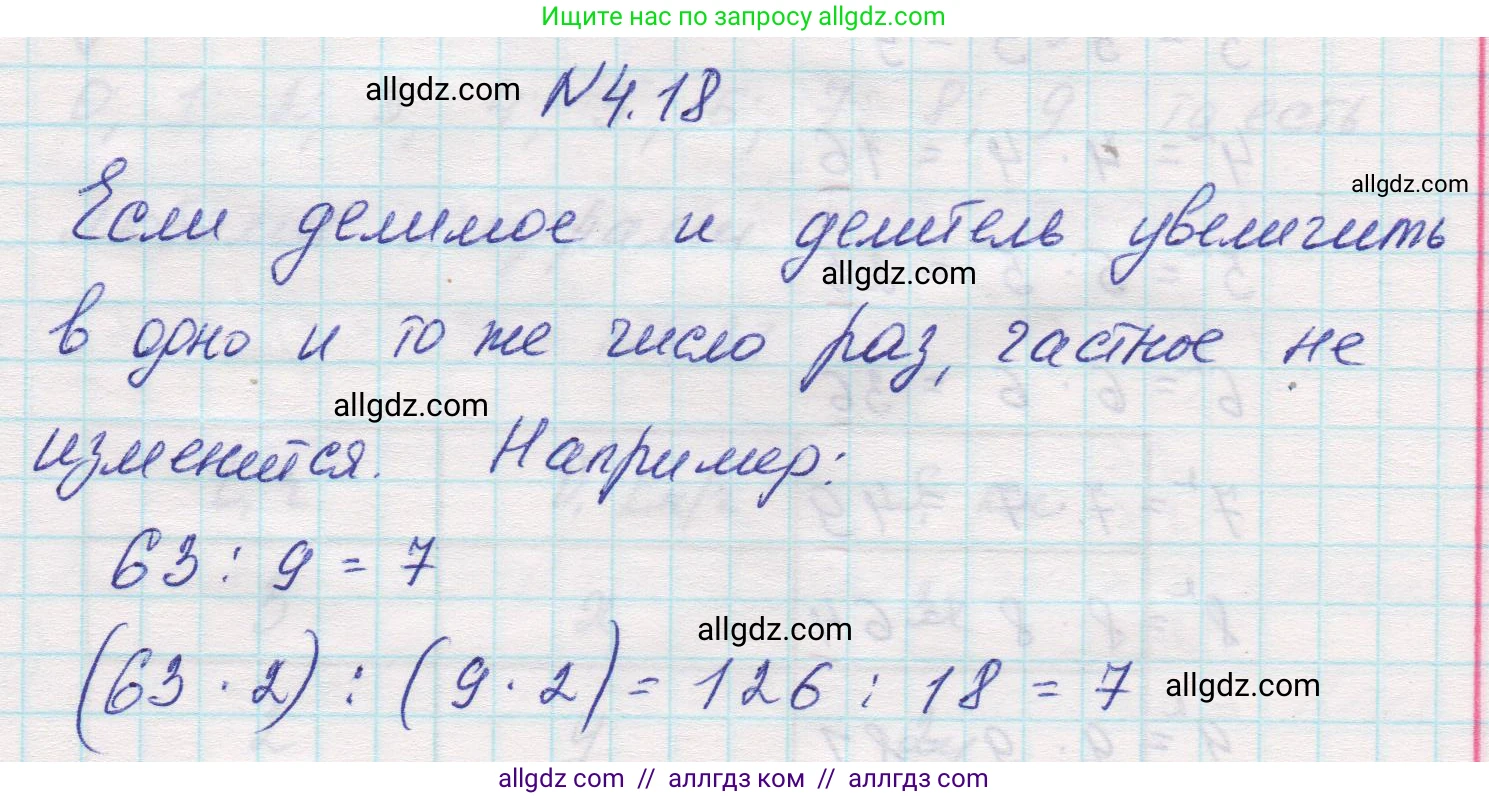 Ищите нас по запросу allgdz.com
allgdz.com №4.18
allgdz.com
Если делимое и делитель увеличить
allgdz.com
в одно и то же число раз, частное не
allgdz.com
изменится. Например:
63 : 9 = 7
allgdz.com
(63 · 2) : (9 · 2) = 126 : 18 = 7 allgdz.com
allgdz.com // аллгдз ком // аллгдз com